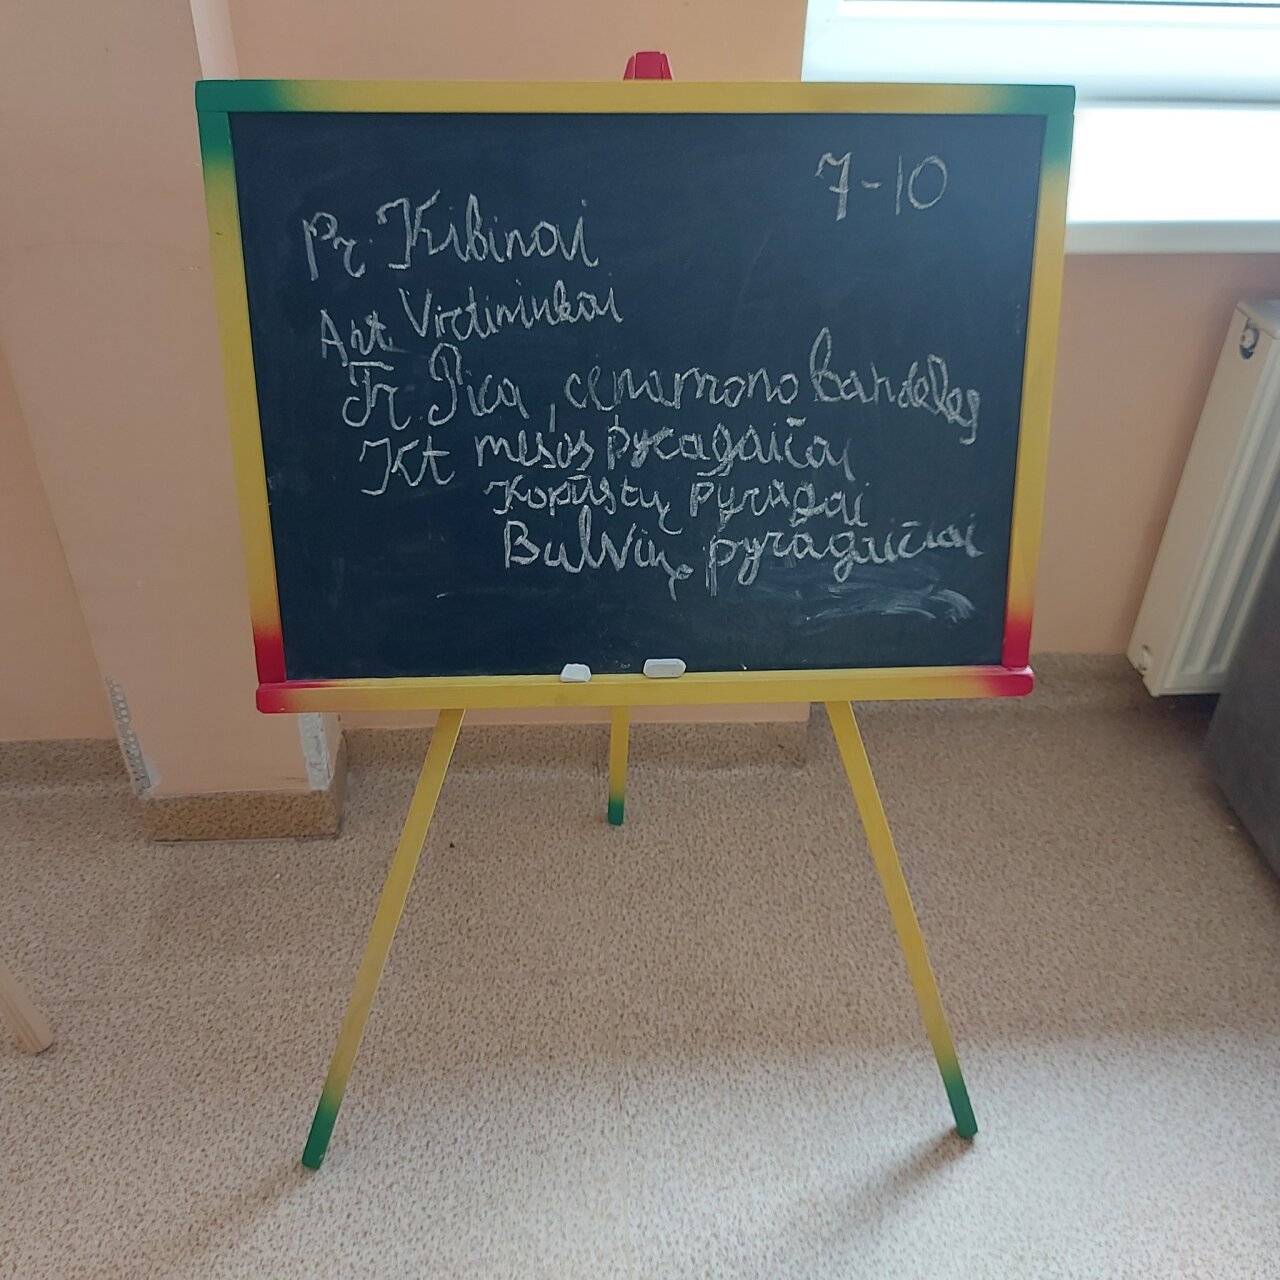 7-10
Pr. Kibinai
Ant. Virtininkai
Tr. Pica, cenamono bandelės
Kt mėsos pyragaičiai
Kopūstų pyragai
Bulvių pyragaičiai